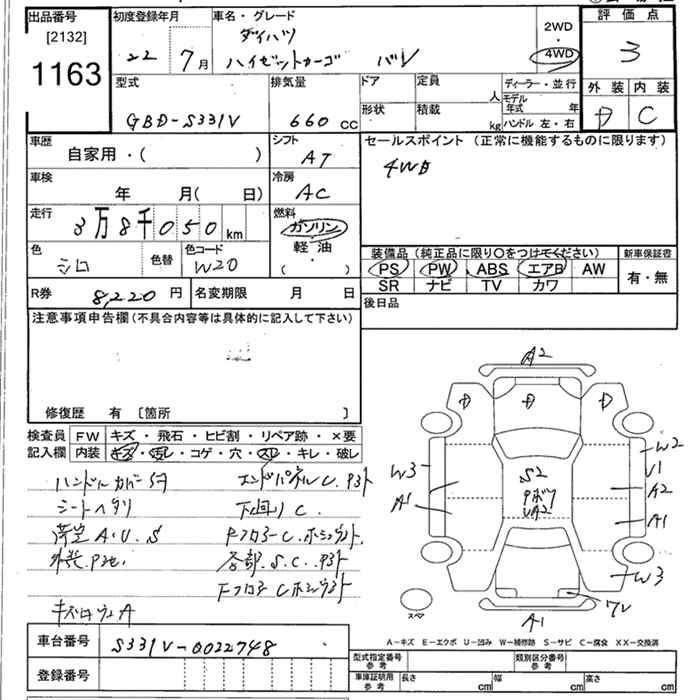 出品番号
[2132]
1163
初度登録年月
22年 7月
車名・グレード
ダイハツ
ハイゼットカーゴ バン
2WD
・
4WD
評価点
3
外装 内装
D C
型式
GBD-S331V
排気量
660 cc
ドア
定員
人
形状
積載
kg
ディーラー・並行
モデル年式 年
ハンドル 左・右
車歴
自家用・( )
シフト
AT
セールスポイント (正常に機能するものに限ります)
4WD
車検
年 月( 日)
冷房
AC
走行
3万8千050km
燃料
ガソリン
・
軽油
・
( )
色
シロ
色替
色コード
W20
装備品 (純正品に限り○をつけてください)
PS PW ABS エアB AW
SR ナビ TV カワ
新車保証書
有・無
R券 8,220円
名変期限 月 日
後日品
注意事項申告欄(不具合内容等は具体的に記入して下さい)
修復歴 有 [箇所 ]
検査員記入欄
FW キズ・飛石・ヒビ割・リペア跡・×要
内装 キズ・汚レ・コゲ・穴・スレ・キレ・破レ
ハンドルカバー
シートヘタリ
荷室 A.U.S
エンドパネルU.
下回りC
FフロアーC.
各部.S.C.
FフロアーC
キズ A
A2
D D D
W3
A1
S2
UA2
W2
A2
A1
W3
スペア
A1
A-キズ E-エクボ U-凹み W-補修跡 S-サビ C-腐食 XX-交換済
車台番号 S331V-0022748
登録番号
型式指定番号 参考
類別区分番号 参考
車庫証明用 参考
長さ cm 幅 cm 高さ cm